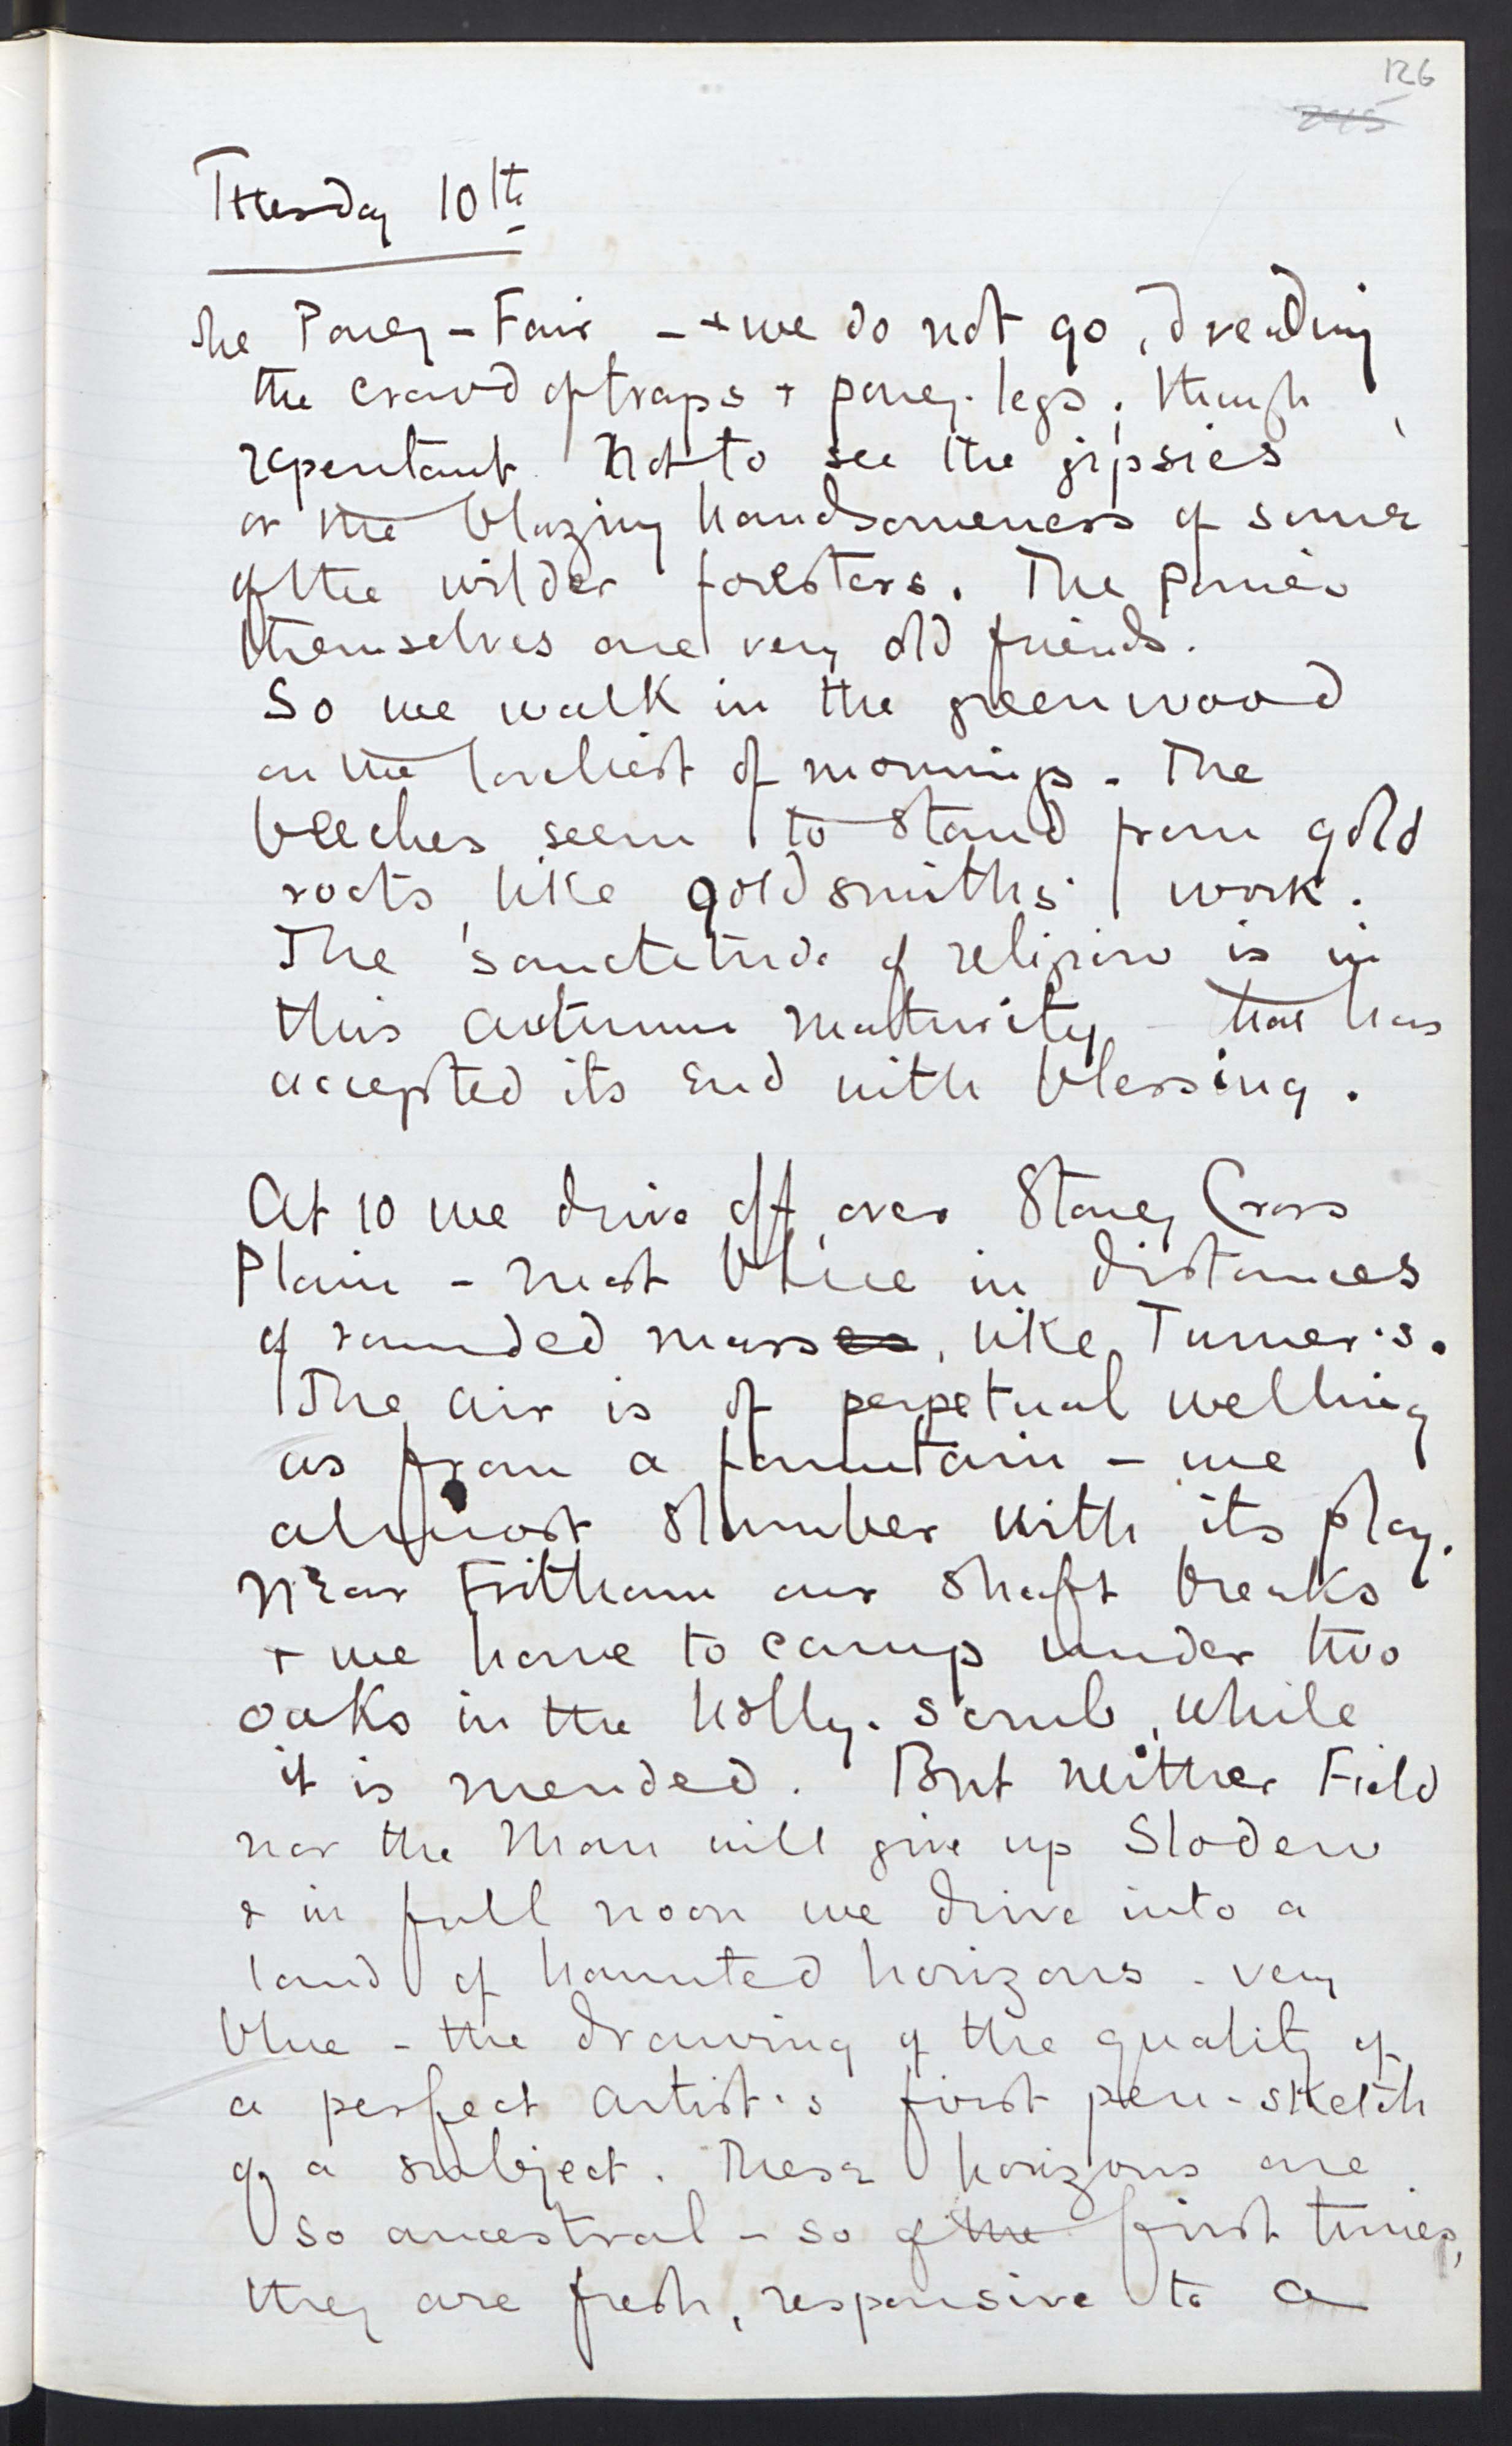 126
Tuesday 10th
The Poney-Fair - + we do not go, dreading
the crowd of traps + poney-legs, though
repentant not to see the gipsies
or the blazing handsomeness of some
of the wilder foresters. The ponies
themselves are very old friends.
So we walk in the greenwood
on the loveliest of mornings. The
beeches seem to stand from gold
roots like goldsmiths' work.
The sanctetude of religion is in
this autumn maturity - that has
accepted its End with blessing.
At 10 we drive off over Stoney Cross
Plain - most blue in distances
of rounded masses, like Turner's.
The air is of perpetual welling
as from a fountain - we
almost slumber with its play.
Near Fritham our shaft breaks
+ we have to camp under two
oaks in the holly-scrub, while
it is mended. But neither Field
nor the Man will give up Sloden
& in full noon we drive into a
land of haunted horizons - very
blue - the drawing of the quality of
a perfect artist's first pen-sketch
of a subject. These horizons are
so ancestral - so of the first times,
they are fresh, responsive to a